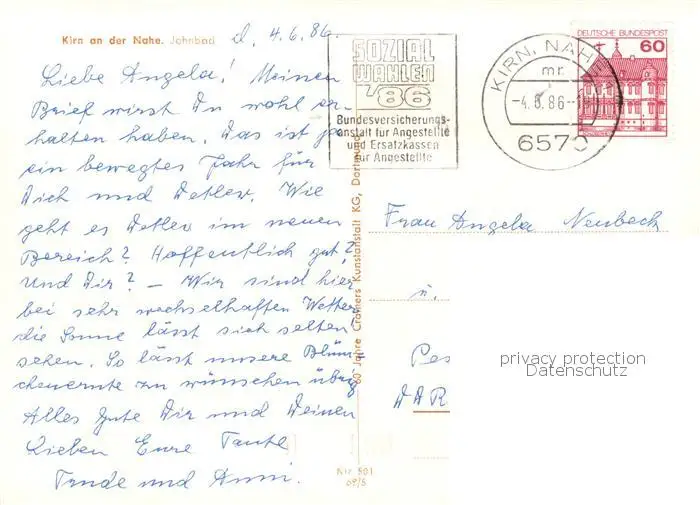 Kirn an der Nahe. Johnbad
d. 4.6.86
Liebe Angela! Meinen
Brief wirst Du wohl er-
halten haben. Das ist ja
ein bewegtes Jahr für
Dich und Detlev. Wie
geht es Detlev im neuen
Bereich? Hoffentlich gut?
Und Dir? – Wir sind hier
bei sehr wechselhaften Wetter,
die Sonne lässt sich selten
sehen. So lässt unsere Blüm-
chenernte zu wünschen übrig
Alles Gute Dir und Deinen
Lieben Eure Tante
Trude und Anni.
SOZIAL
WAHLEN
'86
Bundesversicherungs-
anstalt für Angestellte
und Ersatzkassen
für Angestellte
KIRN, NAHE
mr
-4.6.86-1
6570
DEUTSCHE BUNDESPOST
60
60 Jahre Cramers Kunstanstalt KG, Dortmund
Frau Angela Neubeck
u.
Pes
DDR
privacy protection
Datenschutz
Nr. 501